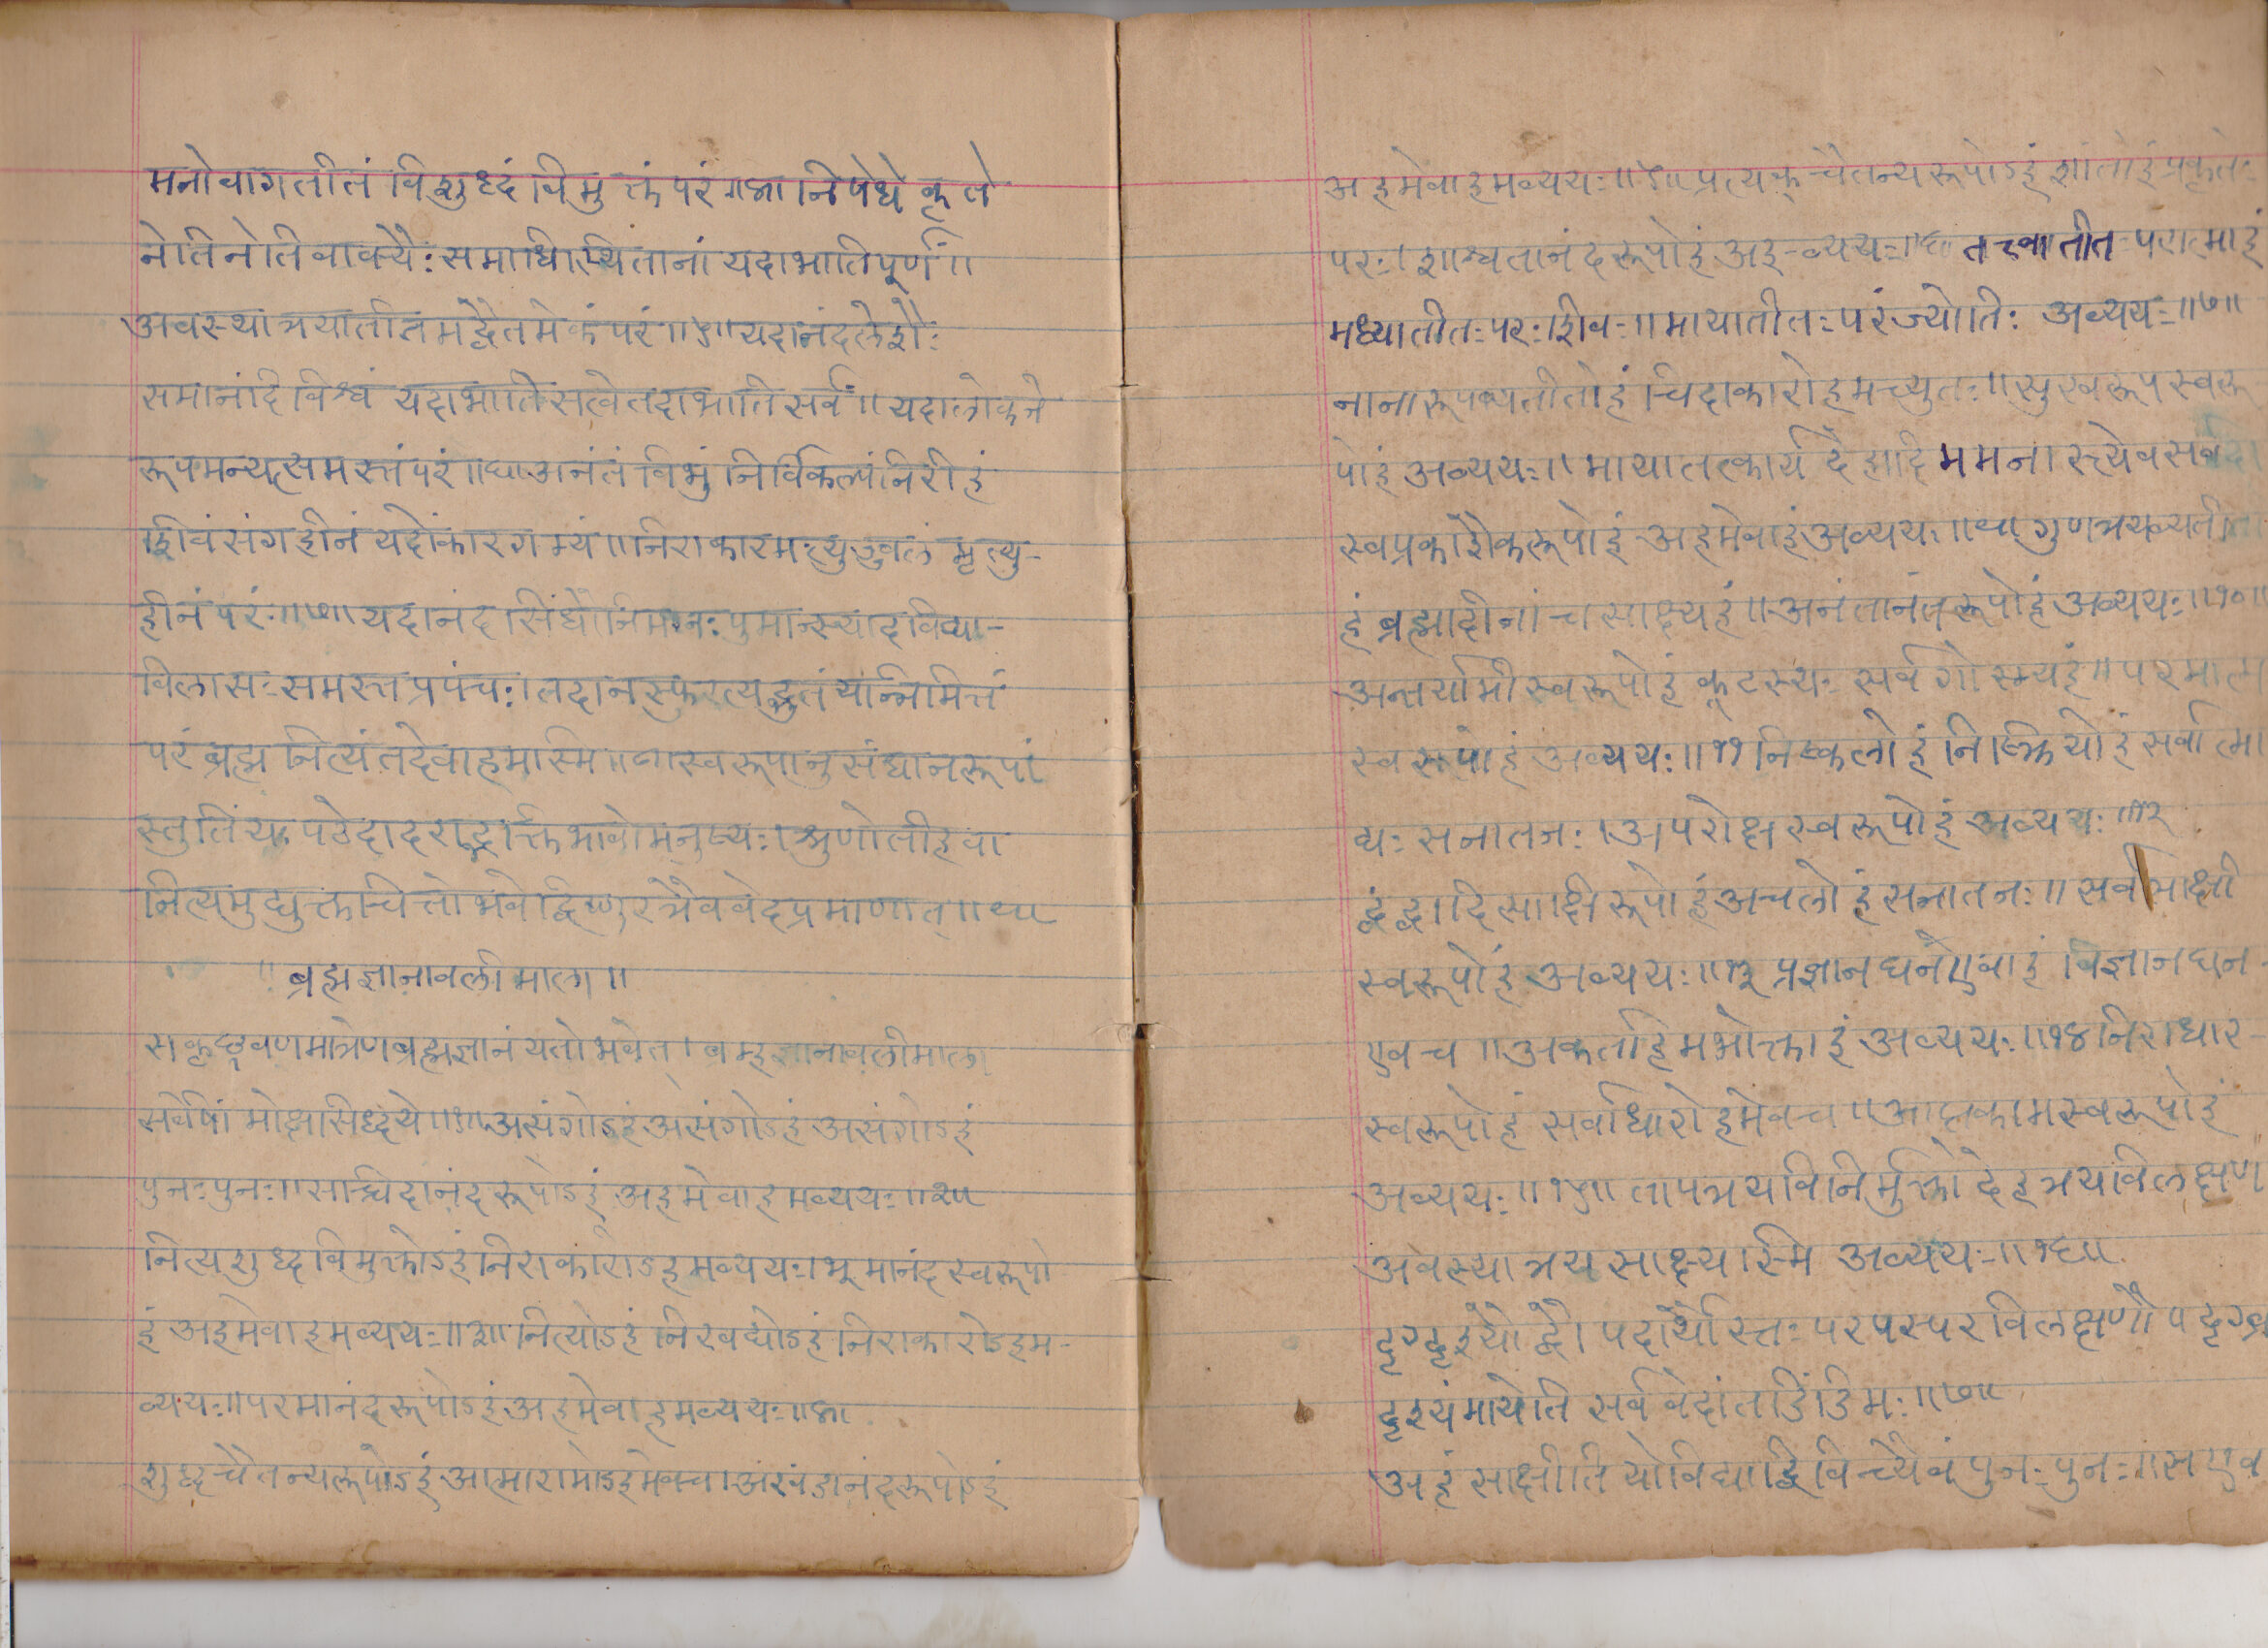 मनोवागतीतं विशुध्दं विमुक्तं परं ॥४॥ निषेधे कृते
नेति नेति वाक्यैः समाधिस्थितानां यदाभातिपूर्णं ॥
अवस्थात्रयातीतमद्वैतमेकं परं ॥५॥ यदानंदलेशैः
समानंदि विश्वं यदाभातिसत्वेतदाभाति सर्वं ॥ यदालोकने
रूपमन्यत्समस्तं परं ॥६॥ अनंतं विभुं निर्विकल्पं निरीहं
शिवं संगहीनं यदोंकारगम्यं ॥ निराकारमत्युज्वलं मृत्यु-
हीनं परं ॥७॥ यदानंद सिंधौ निमग्नः पुमान्स्यादविद्या-
विलासः समस्त प्रपंचः । तदा न स्फुरत्यद्भुतं यन्निमित्तं
परंब्रह्म नित्यं तदेवाहमस्मि ॥८॥ स्वरूपानुसंधानरूपां
स्तुतिं यः पठेदादराद्भक्तिभावो मनुष्यः । श्रुणोतीहवा
नित्यमुद्युक्तचित्तो भवेद्विष्णुरत्रैव वेदप्रमाणात् ॥९॥
॥ ब्रह्मज्ञानावली माला ॥
सकृच्छ्रवणमात्रेण ब्रह्मज्ञानं यतो भवेत् । ब्रम्हज्ञानावलीमाला
सर्वेषां मोक्षसिध्दये ॥१॥ असंगोऽहं असंगोऽहं असंगोऽहं
पुनःपुनः ॥ सच्चिदानंदरूपोऽहं अहमेवाहमव्ययः ॥२॥
नित्यशुध्दविमुक्तोऽहं निराकारोऽहमव्ययः । भूमानंदस्वरूपो
हं अहमेवाहमव्ययः ॥३॥ नित्योऽहं निरवद्योऽहं निराकारोऽहम-
व्ययः ॥ परमानंदरूपोऽहं अहमेवाहमव्ययः ॥४॥
शुध्दचैतन्यरूपोऽहं आत्मारामोऽहमेवच । अखंडानंदरूपोऽहं
अहमेवाहमव्ययः ॥५॥ प्रत्यक् चैतन्यरूपोऽहं शांतोहं प्रकृतेः
परः । शाश्वतानंदरूपोहं अह-व्ययः ॥६॥ तत्त्वातीत परात्माहं
मध्यातीतः परः शिवः ॥ मायातीतः परंज्योतिः अव्ययः ॥७॥
नानारूपव्यतीतोहं चिदाकारोहमच्युतः ॥ सुखरूपस्वरू
पोहं अव्ययः ॥ मायातत्कार्य देहादि मम नास्त्येव सर्वदा
स्वप्रकाशैकरूपोहं अहमेवाहं अव्ययः ॥९॥ गुणत्रयव्यतीतो
हं ब्रह्मादीनां च साक्ष्यहं ॥ अनंतानंतरूपोहं अव्ययः ॥१०॥
अन्तर्यामीस्वरूपोहं कूटस्थः सर्वगोस्म्यहं ॥ परमात्म
स्वरूपोहं अव्ययः ॥११ निष्कलोहं निष्क्रियोहं सर्वात्मा
द्यः सनातनः । अपरोक्षस्वरूपोहं अव्ययः ॥१२
द्वंद्वादि साक्षिरूपोहं अचलोहं सनातनः ॥ सर्वसाक्षी
स्वरूपोहं अव्ययः ॥१३ प्रज्ञानघनएवाहं विज्ञानघन-
एव च ॥ अकर्ताहमभोक्ताहं अव्ययः ॥१४ निराधार-
स्वरूपोहं सर्वाधारोहमेवच ॥ आप्तकामस्वरूपोहं
अव्ययः ॥१५॥ तापत्रयविनिर्मुक्तो देहत्रयविलक्षण
अवस्थात्रय साक्ष्यास्मि अव्ययः ॥१६॥
दृग्दृश्यो द्वौ पदार्थोस्तः परपस्परविलक्षणौ दृग्ब्र
दृश्यंमायेति सर्व वेदांतडिंडिमः ॥७॥
अहं साक्षीति योविद्याद्विविच्यैवं पुनःपुनः ॥ स एव